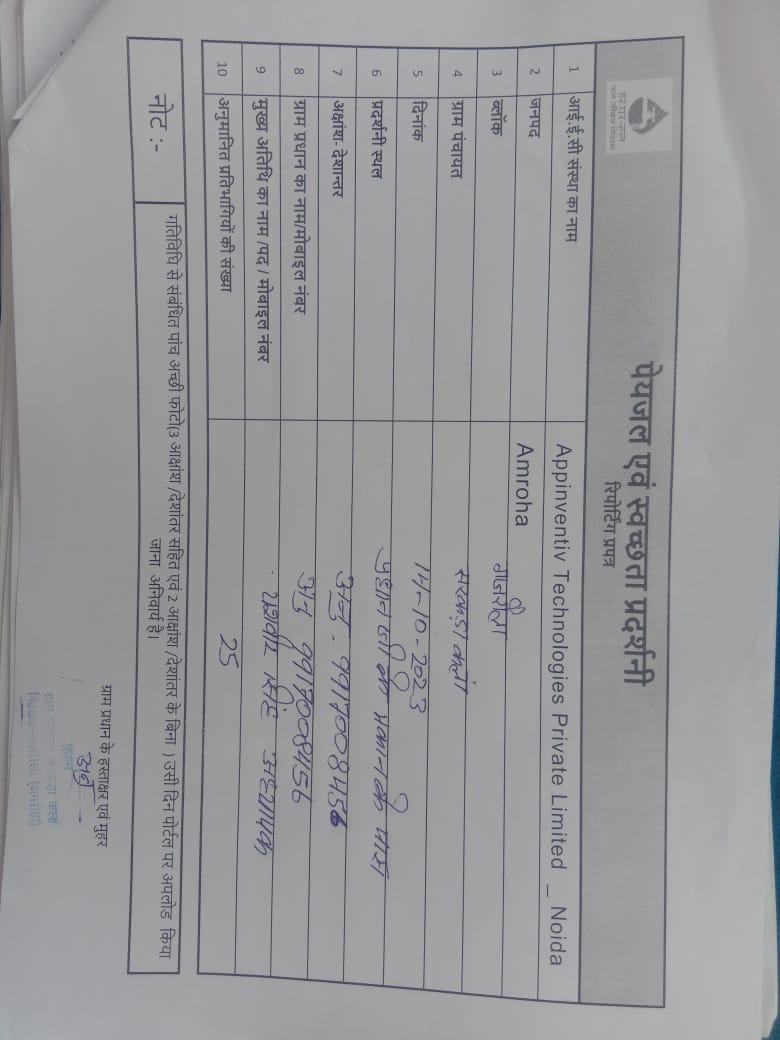 हर घर जल
जल जीवन मिशन
पेयजल एवं स्वच्छता प्रदर्शनी
रिपोर्टिंग प्रपत्र
1 आई.ई.सी संस्था का नाम Appinventiv Technologies Private Limited _ Noida
2 जनपद Amroha
3 ब्लॉक गजरौला
4 ग्राम पंचायत सरकड़ा कलां
5 दिनांक 14-10-2023
6 प्रदर्शनी स्थल प्रधान जी के मकान के पास
7 अक्षांश- देशान्तर अनु - 9917008456
8 ग्राम प्रधान का नाम/मोबाइल नंबर अनु 9917008456
9 मुख्य अतिथि का नाम /पद / मोबाइल नंबर यशवीर सिंह अध्यापक
10 अनुमानित प्रतिभागियों की संख्या 25
नोट :- गतिविधि से संबंधित पांच अच्छी फोटो(3 आक्षांश /देशांतर सहित एवं 2 आक्षांश /देशांतर के बिना ) उसी दिन पोर्टल पर अपलोड किया
जाना अनिवार्य है।
ग्राम प्रधान के हस्ताक्षर एवं मुहर
अनु